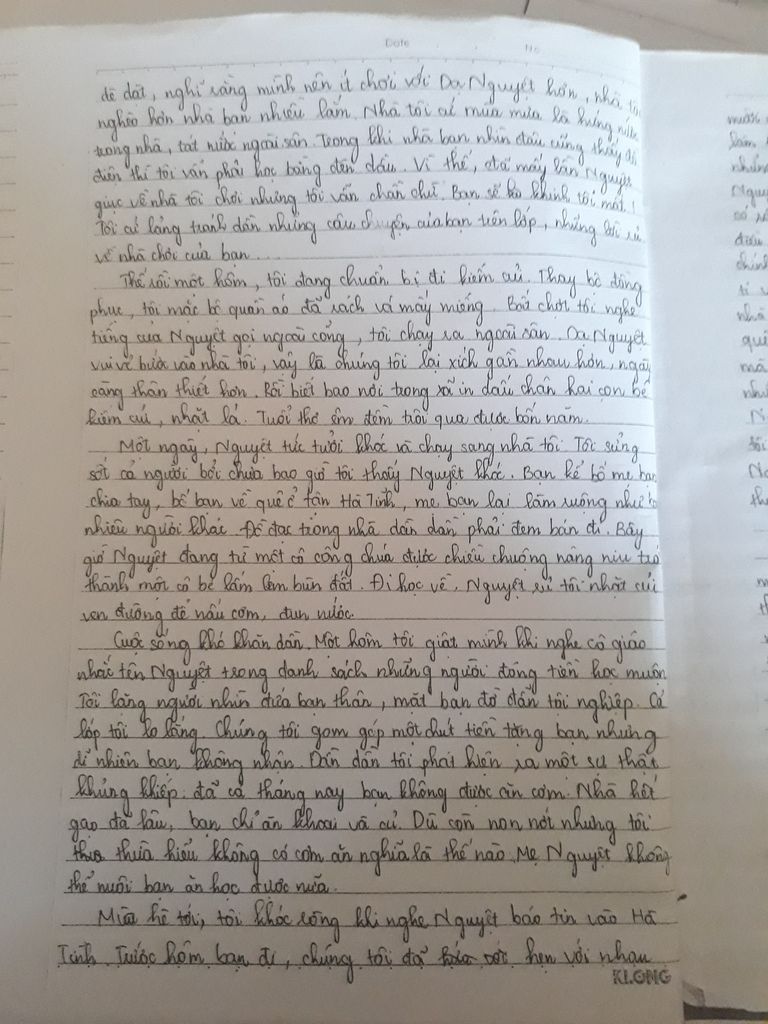 Date No.
dè dặt, nghĩ rằng mình nên ít chơi với Dạ Nguyệt hơn, nhà tôi
nghèo hơn nhà bạn nhiều lắm. Nhà tôi cứ mùa mưa là hứng nước
trong nhà, tát nước ngoài sân. Trong khi nhà bạn nhìn đâu cũng thấy đồ
điện thì tôi vẫn phải học bằng đèn dầu. Vì thế, đã mấy lần Nguyệt
giục về nhà tôi chơi nhưng tôi vẫn chần chừ. Bạn sẽ khinh tôi mất!
Tôi cứ lảng tránh dần những câu chuyện của bạn trên lớp, những lời rủ
về nhà chơi của bạn.
Thế rồi một hôm, tôi đang chuẩn bị đi kiếm củi. Thay bộ đồng
phục, tôi mặc bộ quần áo đã rách vá mấy miếng. Bất chợt tôi nghe
tiếng của Nguyệt gọi ngoài cổng, tôi chạy ra ngoài sân. Dạ Nguyệt
vui vẻ bước vào nhà tôi, vậy là chúng tôi lại xích gần nhau hơn, ngày
càng thân thiết hơn. Rồi biết bao nơi trong xã in dấu chân hai con bé
kiếm củi, nhặt lá. Tuổi thơ êm đềm trôi qua được bốn năm.
Một ngày, Nguyệt tức tưởi khóc và chạy sang nhà tôi. Tôi sửng
sốt cả người bởi chưa bao giờ tôi thấy Nguyệt khóc. Bạn kể bố mẹ bạn
chia tay, bố bạn về quê ở tận Hà Tĩnh, mẹ bạn lại làm ruộng như bao
nhiêu người khác. Đồ đạc trong nhà dần dần phải đem bán đi. Bây
giờ Nguyệt đang từ một cô công chúa được chiều chuộng nâng niu trở
thành một cô bé lấm lem bùn đất. Đi học về, Nguyệt rủ tôi nhặt củi
ven đường để nấu cơm, đun nước.
Cuộc sống khó khăn dần. Một hôm tôi giật mình khi nghe cô giáo
nhắc tên Nguyệt trong danh sách những người đóng tiền học muộn.
Tôi lặng người nhìn đứa bạn thân, mặt bạn đờ đẫn tội nghiệp. Cả
lớp tôi lo lắng. Chúng tôi gom góp một chút tiền tặng bạn nhưng
dĩ nhiên bạn không nhận. Dần dần tôi phát hiện ra một sự thật
khủng khiếp: đã cả tháng nay bạn không được ăn cơm. Nhà hết
gạo đã lâu, bạn chỉ ăn khoai và củ. Dù còn non nớt nhưng tôi
thừa hiểu không có cơm ăn nghĩa là thế nào. Mẹ Nguyệt không
thể nuôi bạn ăn học được nữa.
Mùa hè tới, tôi khóc ròng khi nghe Nguyệt báo tin vào Hà
Tĩnh. Trước hôm bạn đi, chúng tôi đã hẹn với nhau
KLONG